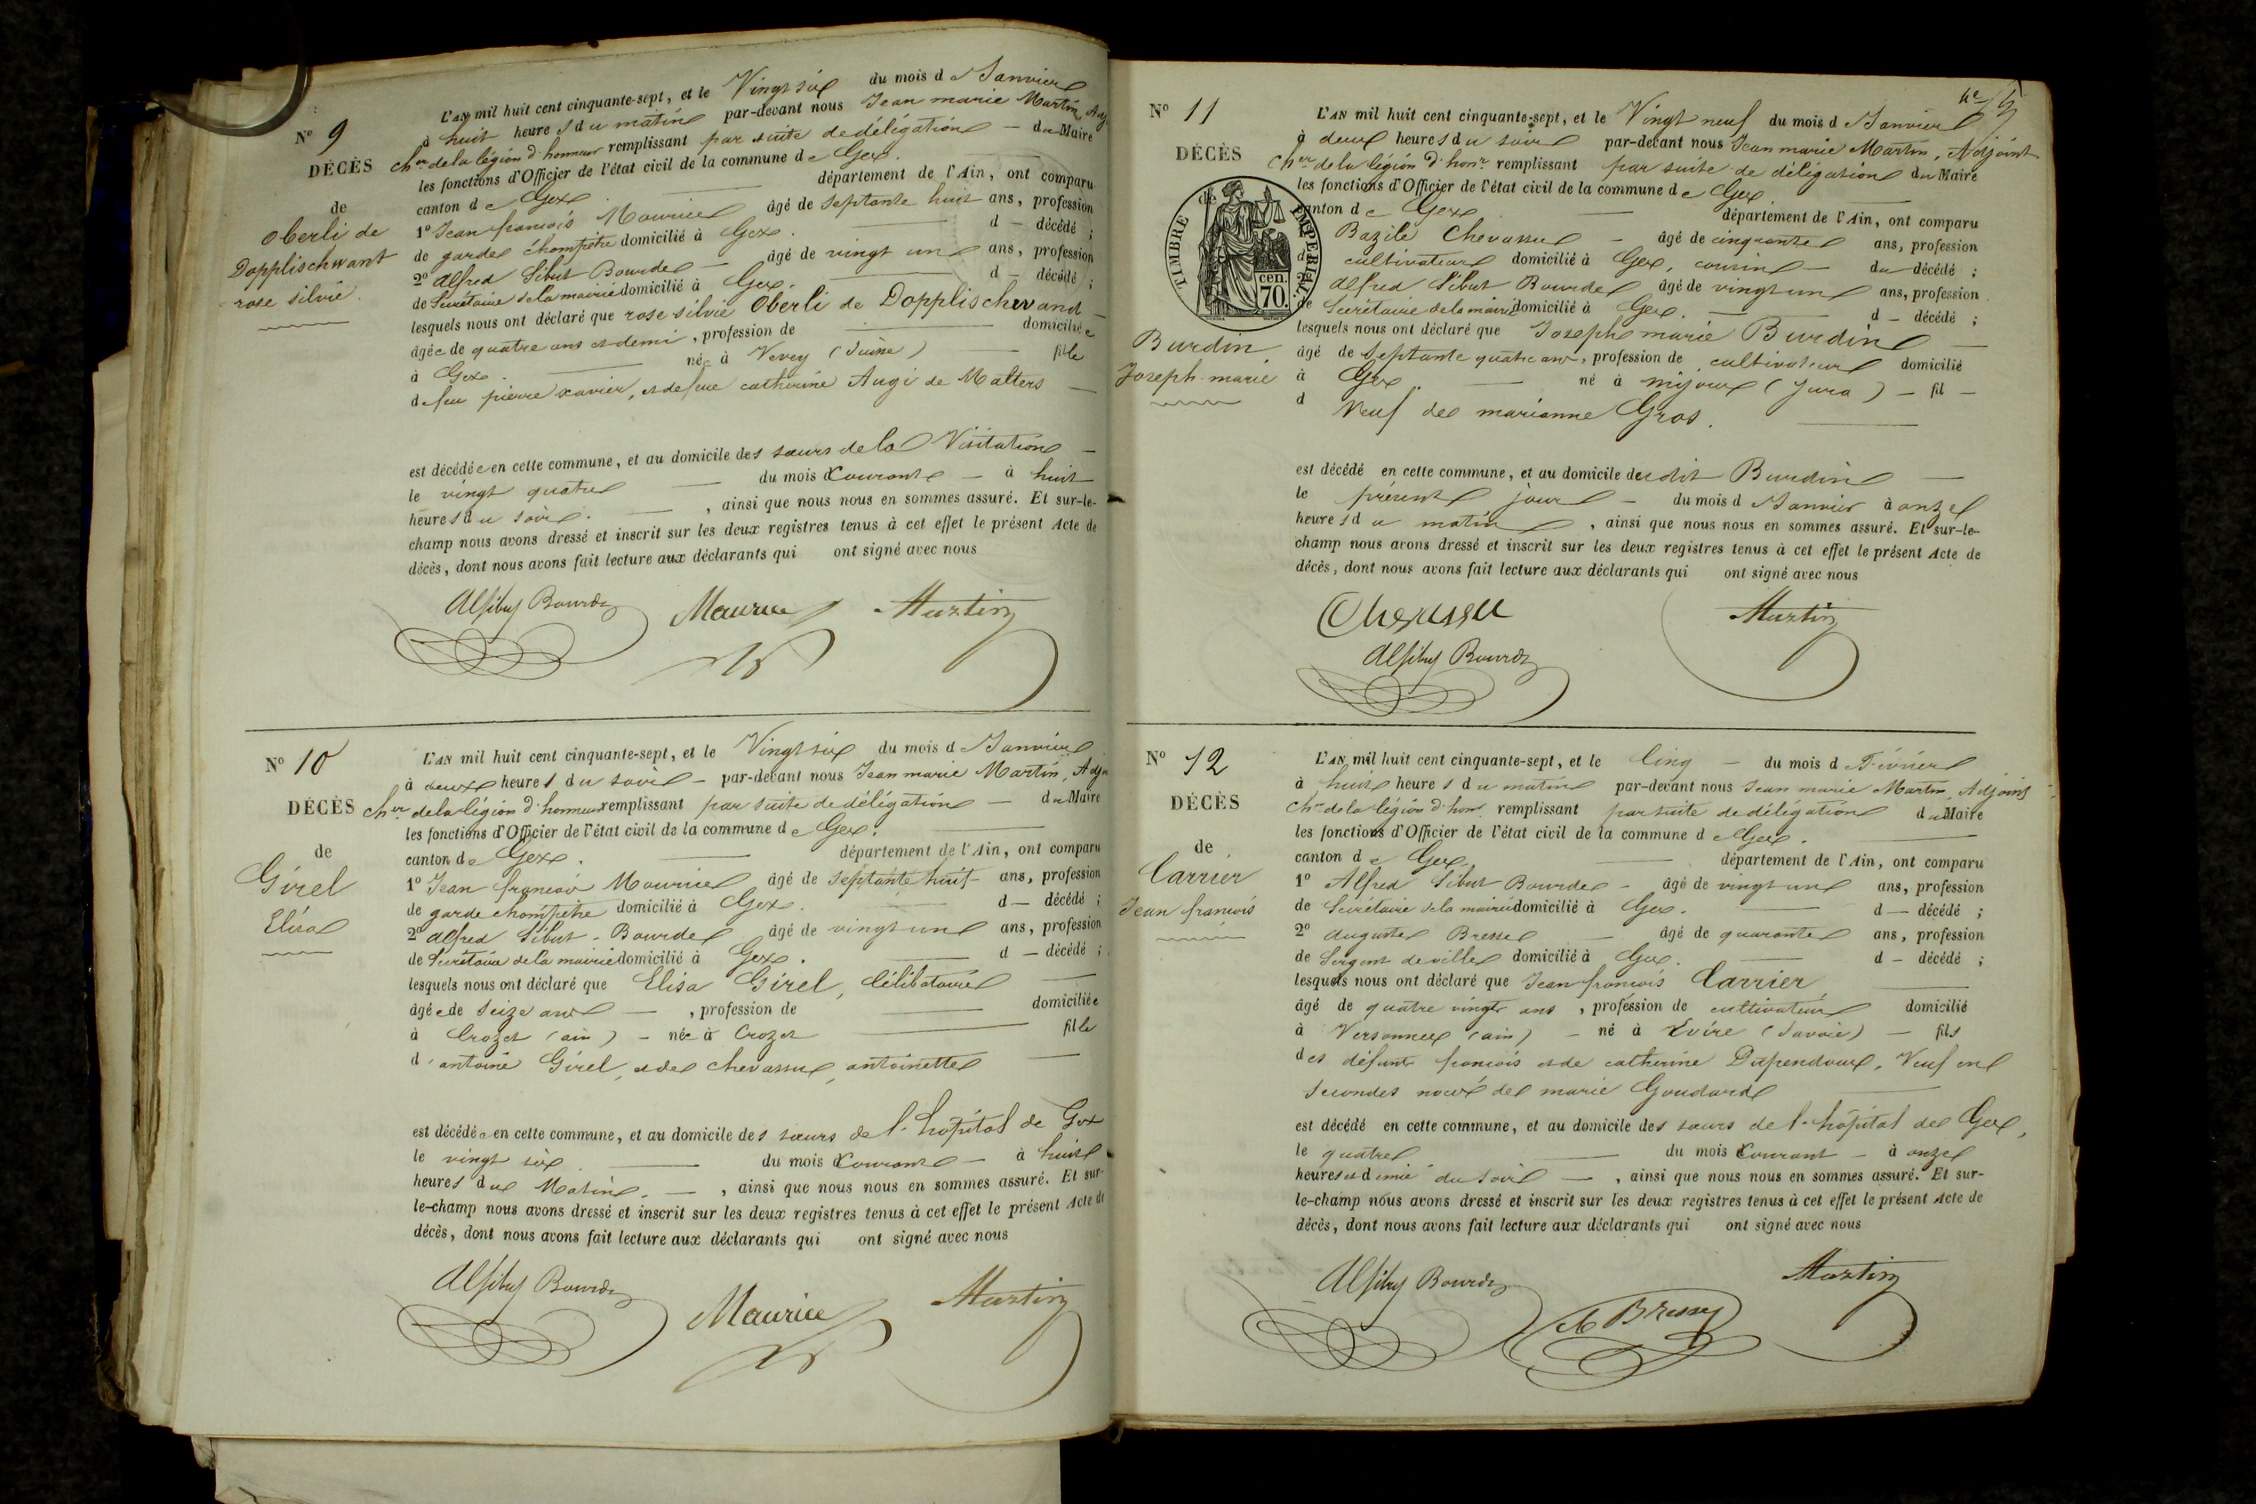 N° 9
DÉCÈS
de
Oberli de
Dopplischwant
rose silvie.
L'AN mil huit cent cinquante-sept, et le Vingt six du mois de Janvier
à huit heures du matin par-devant nous Jean marie Martin, Adj.
Cher de la légion d'honneur remplissant par suite de délégation — du Maire
les fonctions d'Officier de l'état civil de la commune de Gex.
canton de Gex département de l'Ain, ont comparu
1° Jean françois Maurice âgé de septante huit ans, profession
de garde champêtre domicilié à Gex. d — décédé ;
2° Alfred Sibut Bourde — âgé de vingt un ans, profession
de Secrétaire de la mairie domicilié à Gex. d — décédé ;
lesquels nous ont déclaré que rose silvie Oberli de Dopplischevand —
âgée de quatre ans et demi, profession de domiciliée
à Gex. née à Vevey (Suisse) fille
de feu pierre xavier, et de feue catherine Augi de Malters —
est décédée en cette commune, et au domicile des sœurs de la Visitation —
le vingt quatre — du mois Courant — à huit
heures du soir. — , ainsi que nous nous en sommes assuré. Et sur-le-
champ nous avons dressé et inscrit sur les deux registres tenus à cet effet le présent Acte de
décès, dont nous avons fait lecture aux déclarants qui ont signé avec nous
Alf Sibut Bourde Maurice Martin
N° 10
DÉCÈS
de
Girel
Elisa
L'AN mil huit cent cinquante-sept, et le Vingt six du mois de Janvier
à deux heures du soir — par-devant nous Jean marie Martin, Adj
Cher de la légion d'honneur remplissant par suite de délégation — du Maire
les fonctions d'Officier de l'état civil de la commune de Gex.
canton de Gex. département de l'Ain, ont comparu
1° Jean françois Maurice âgé de septante huit ans, profession
de garde champêtre domicilié à Gex. d — décédé ;
2° Alfred Sibut-Bourde âgé de vingt un ans, profession
de Secrétaire de la mairie domicilié à Gex. d — décédé ;
lesquels nous ont déclaré que Elisa Girel, Célibataire
âgée de seize ans — , profession de domiciliée
à Crozet (ain) — née à Crozet fille
d'antoine Girel, et de chevassu, antoinette —
est décédée en cette commune, et au domicile des sœurs de l'hôpital de Gex
le vingt six. du mois Courant — à huit
heures du Matin. — , ainsi que nous nous en sommes assuré. Et sur-
le-champ nous avons dressé et inscrit sur les deux registres tenus à cet effet le présent Acte de
décès, dont nous avons fait lecture aux déclarants qui ont signé avec nous
Alf Sibut Bourde Maurice Martin
N° 11
DÉCÈS
de
TIMBRE IMPERIAL.
70 cen.
Burdin,
Joseph-marie
L'AN mil huit cent cinquante-sept, et le Vingt neuf du mois de Janvier
à deux heures du soir par-devant nous Jean marie Martin, Adjoint
Cher de la légion d'honr remplissant par suite de délégation du Maire
les fonctions d'Officier de l'état civil de la commune de Gex
canton de Gex département de l'Ain, ont comparu
Bazile Chevassu — âgé de cinquante ans, profession
cultivateur domicilié à Gex, cousin — du décédé ;
Alfred Sibut Bourde âgé de vingt un ans, profession
de Secrétaire de la mairie domicilié à Gex. d — décédé ;
lesquels nous ont déclaré que Joseph marie Burdin —
âgé de septante quatre ans, profession de cultivateur domicilié
à Gex. né à mijoux (Jura) — fil —
d Veuf de marianne Gros.
est décédé en cette commune, et au domicile dudit Burdin —
le présent jour — du mois de Janvier à onze
heures du matin , ainsi que nous nous en sommes assuré. Et sur-le-
champ nous avons dressé et inscrit sur les deux registres tenus à cet effet le présent Acte de
décès, dont nous avons fait lecture aux déclarants qui ont signé avec nous
Chevassu Martin
Alf Sibut Bourde
N° 12
DÉCÈS
de
Carrier
Jean françois
L'AN mil huit cent cinquante-sept, et le Cinq — du mois de Février
à huit heures du matin par-devant nous Jean marie Martin, Adjoint
Cher de la légion d'honr remplissant par suite de délégation du Maire
les fonctions d'Officier de l'état civil de la commune de Gex.
canton de Gex département de l'Ain, ont comparu
1° Alfred Sibut Bourde — âgé de vingt un ans, profession
de Secrétaire de la mairie domicilié à Gex. d — décédé ;
2° Auguste Bresse — âgé de quarante ans, profession
de Sergent de ville domicilié à Gex. d — décédé ;
lesquels nous ont déclaré que Jean françois Carrier
âgé de quatre vingts ans, profession de cultivateur domicilié
à Versonnex (ain) — né à Evire (Savoie) — fils
des défunts françois et de catherine Dupendoux, Veuf en
secondes noces de marie Goudard
est décédé en cette commune, et au domicile des sœurs de l'hôpital de Gex,
le quatre du mois Courant — à onze
heures et demie du soir — , ainsi que nous nous en sommes assuré. Et sur-
le-champ nous avons dressé et inscrit sur les deux registres tenus à cet effet le présent Acte de
décès, dont nous avons fait lecture aux déclarants qui ont signé avec nous
Alf Sibut Bourde A Bresse Martin